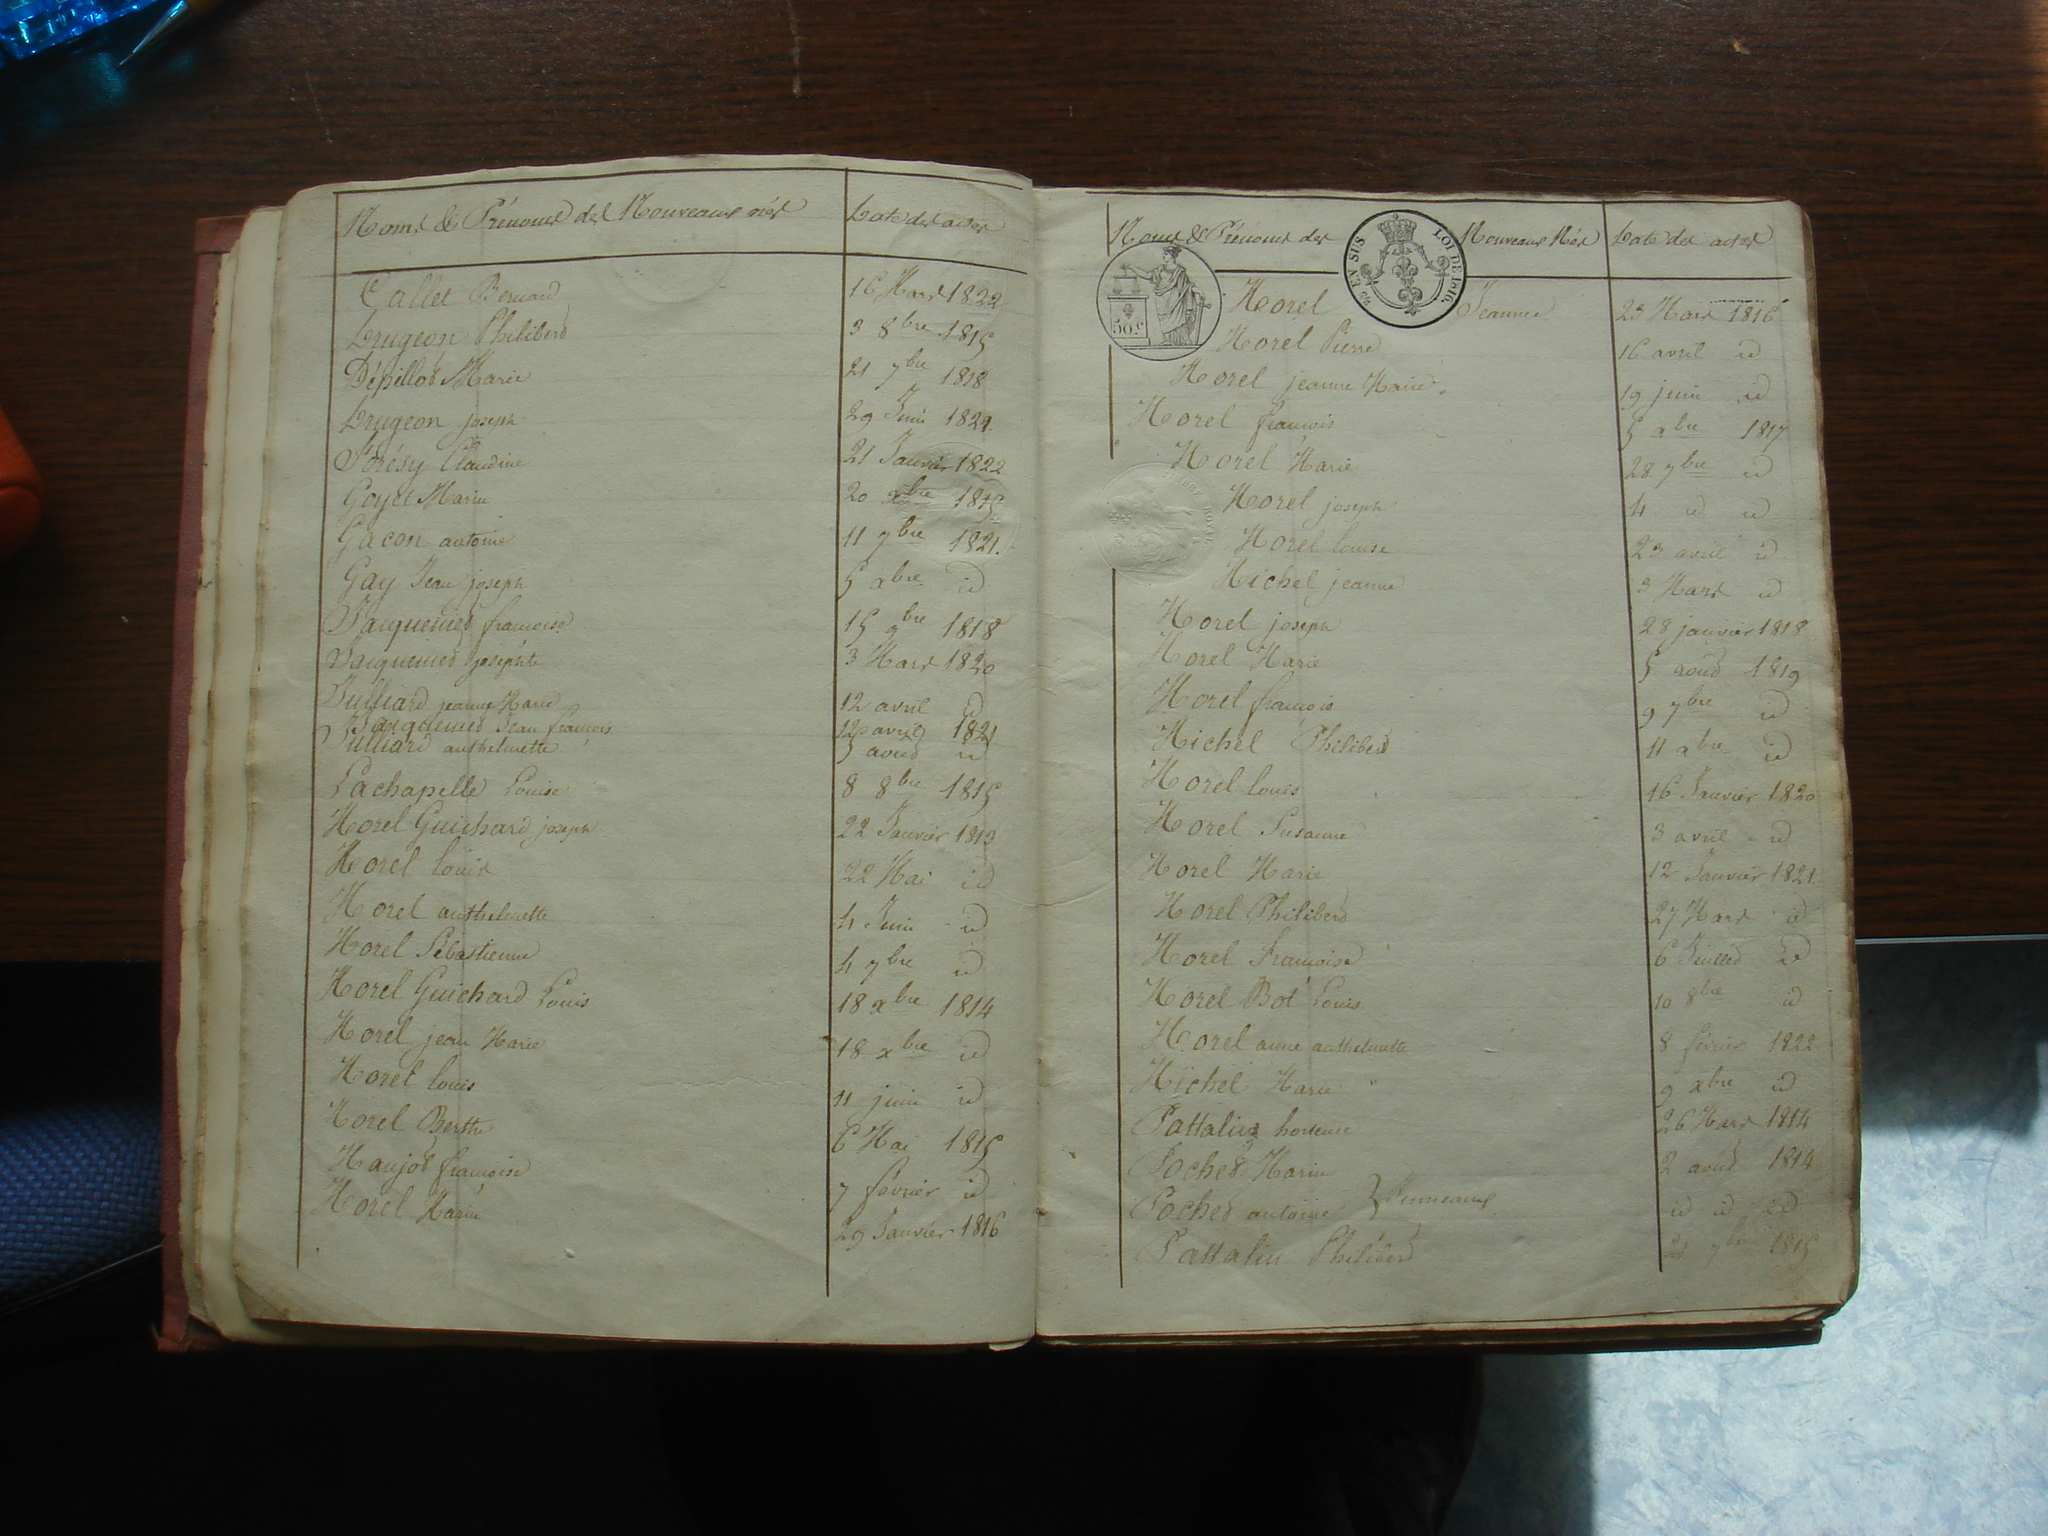 Noms & Prénoms des Nouveaux nés Date des actes
Callet Bernard 16 Mars 1822
Drugeon Philiberd 3 8bre 1815
Dépillod Marie 21 7bre 1818
Drugeon joseph 29 Juin 1821
Forésy Claudine 21 Janvier 1822
Goyet Marie 20 xbre 1815
Gacon antoine 11 7bre 1821.
Gay Jean joseph 5 xbre id
Jacquemed francoise 15 9bre 1818
Jacquemed josephte 3 Mars 1820
Julliard jeanne Marie 12 avril id
Jacquemed Jean francois 12 avril 1821
Julliard anthelmette 5 aoud id
Lachapelle Louise 8 8bre 1815
Morel Guichard joseph 22 Janvier 1813
Morel Louis 22 Mai id
Morel anthelmette 4 Juin id
Morel Sébastienne 4 7bre id
Morel Guichard Louis 18 xbre 1814
Morel jean Marie 18 xbre id
Morel louis 11 juin id
Morel Berthe 6 Mai 1815
Maujod francoise 7 fevrier id
Morel Marie 29 Janvier 1816
Noms & Prénoms des Nouveaux Nés Date des actes
EN SUS LOI DE 1816.
50 c
Morel Jeanne 23 Mars 1816
Morel Pierre 16 avril id
Morel jeanne Marie 19 juin id
Morel francois 5 xbre 1817
Morel Marie 28 7bre id
Morel joseph 4 id id
Morel louise 23 avril id
Michel jeanne 3 Mars id
Morel joseph 28 janvier 1818
Morel Marie 5 aoud 1819
Morel francois 9 7bre id
Michel Philiberd 11 xbre id
Morel louis 16 Janvier 1820
Morel Susanne 3 avril id
Morel Marie 12 Janvier 1821.
Morel Philiberd 27 Mars id
Morel francoise 6 Juilled id
Morel Bot Louis 10 8bre id
Morel anne anthelmette 8 fevrier 1822
Michel Marie 9 xbre id
Pattalin hortense 26 Mars 1814
Poched Marie 2 aoud 1814
Poched antoine } Jumeaux id id id
Pattalin Philiberd 21 7bre 1815